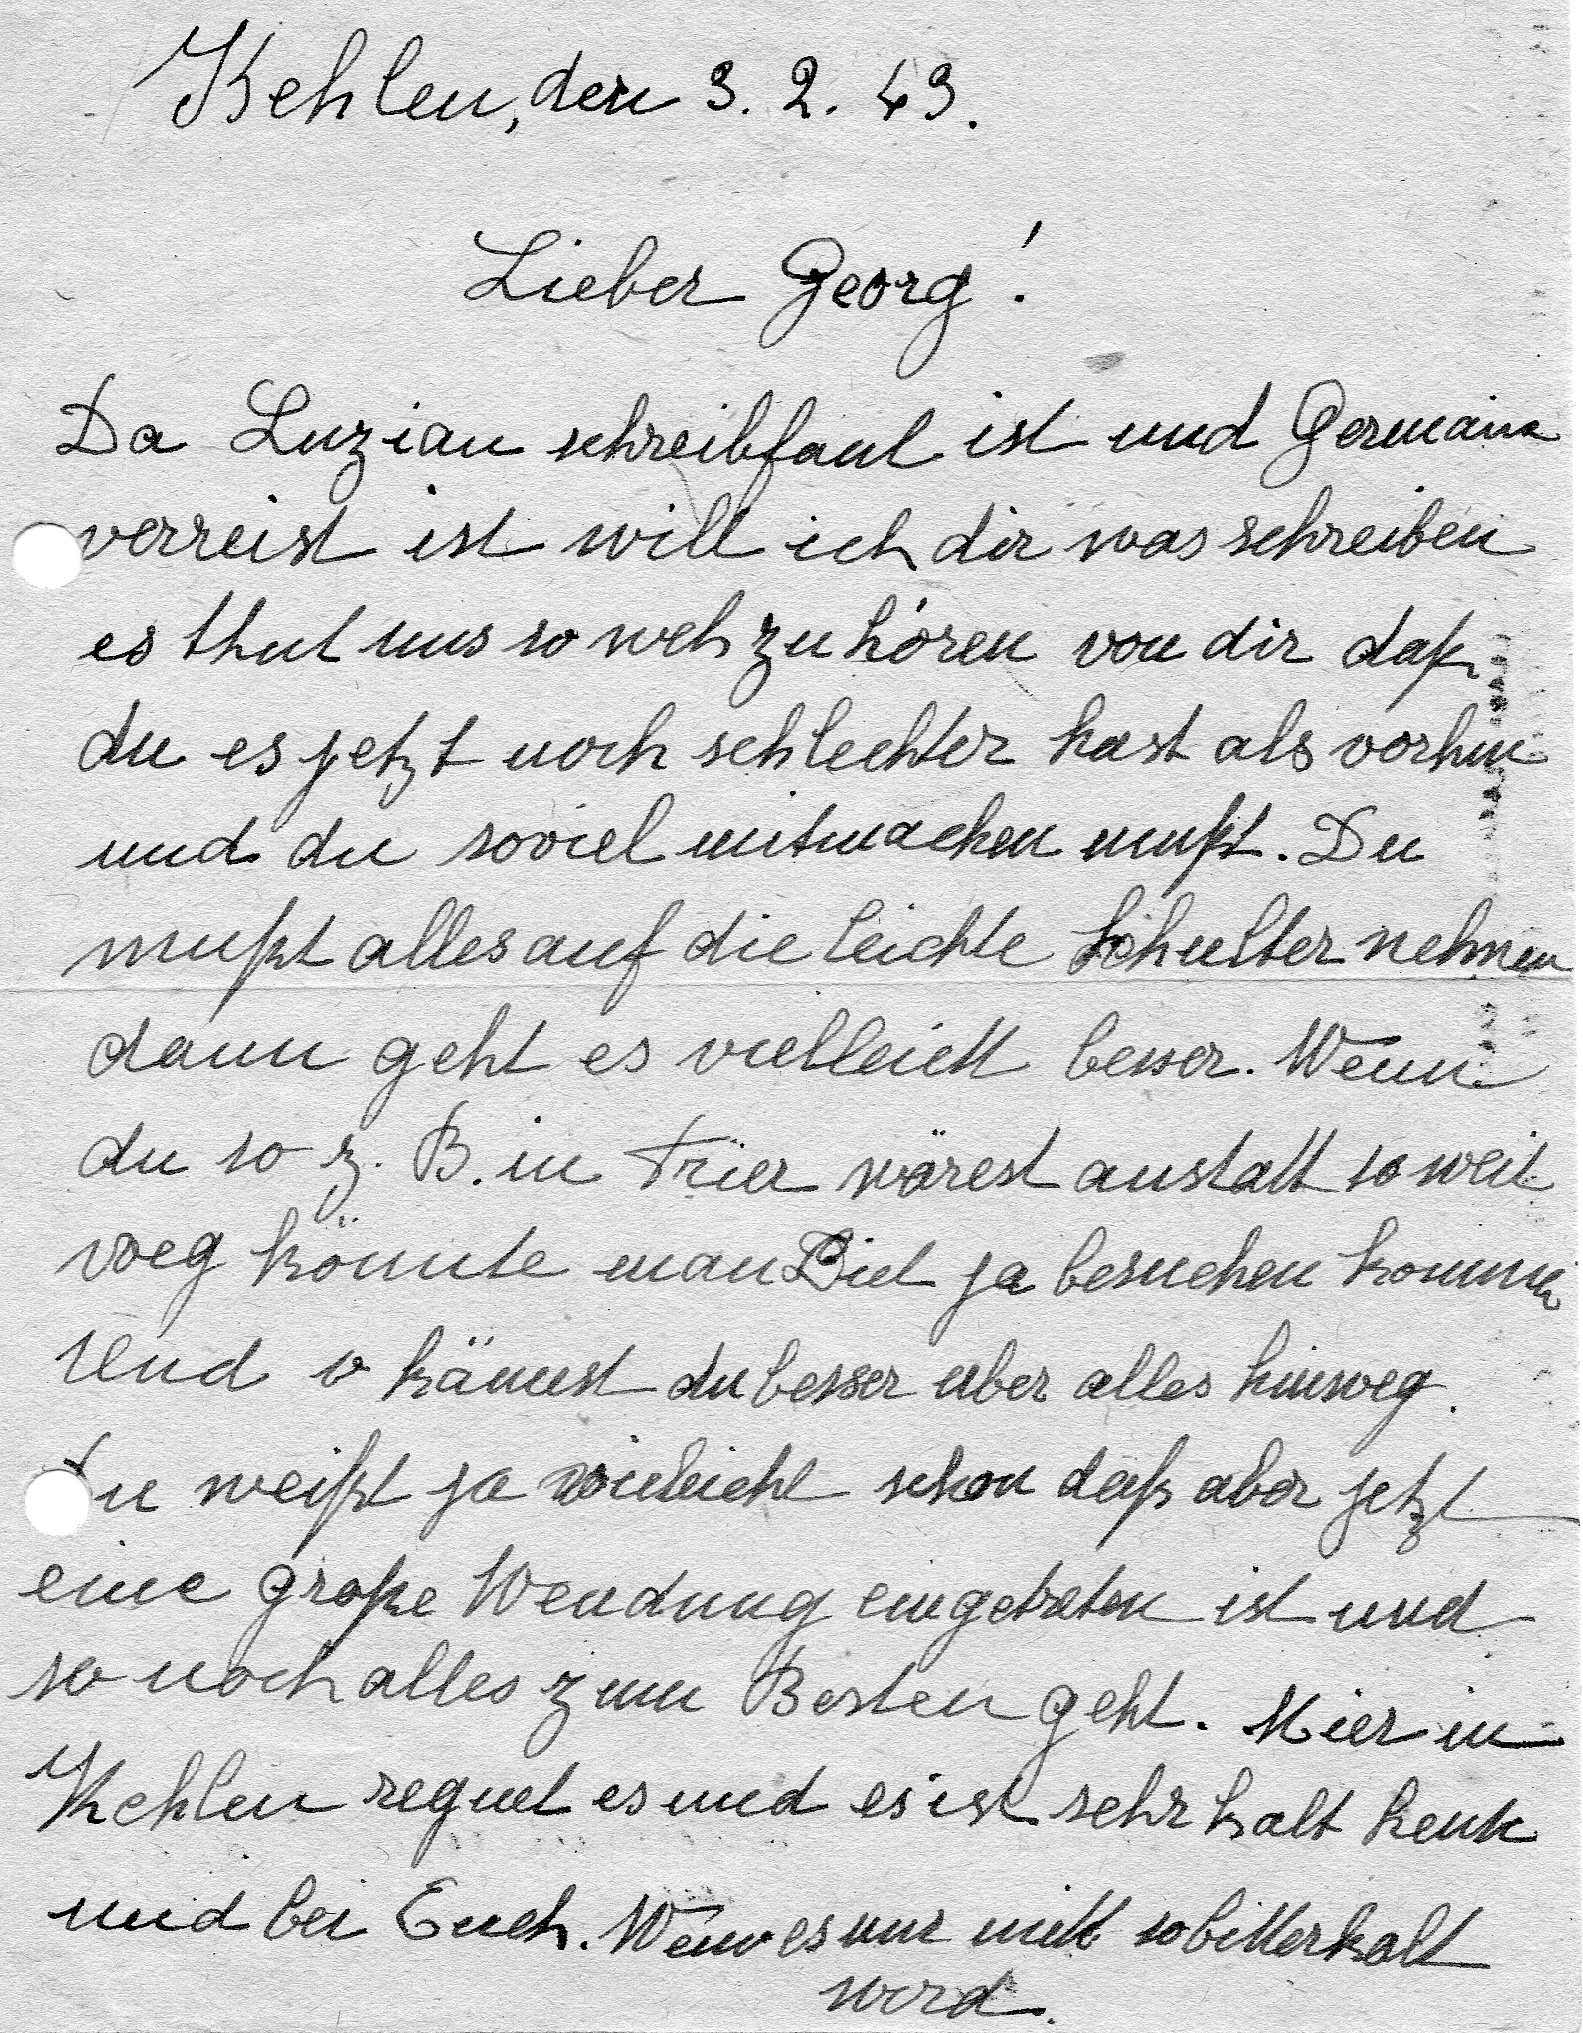 Kehlen, den 3. 2. 43.
Lieber Georg!
Da Luzian schreibfaul ist und Germaine
verreist ist will ich dir was schreiben
es thut uns so weh zu hören von dir daß
du es jetzt noch schlechter hast als vorhin
und du soviel mitmachen mußt. Du
mußt alles auf die leichte Schulter nehmen
dann geht es vielleicht besser. Wenn
du so z. B. in Trier wärest anstatt so weit
weg könnte man Dich ja besuchen kommen
Und so kämest du besser uber alles hinweg.
Du weißt ja vieleicht schon daß aber jetzt
eine große Wendung eingetreten ist und
so noch alles zum Besten geht. Hier in
Kehlen regnet es und es ist sehr kalt heute
und bei Euch. Wenn es nur nicht so bitterkalt
werd.